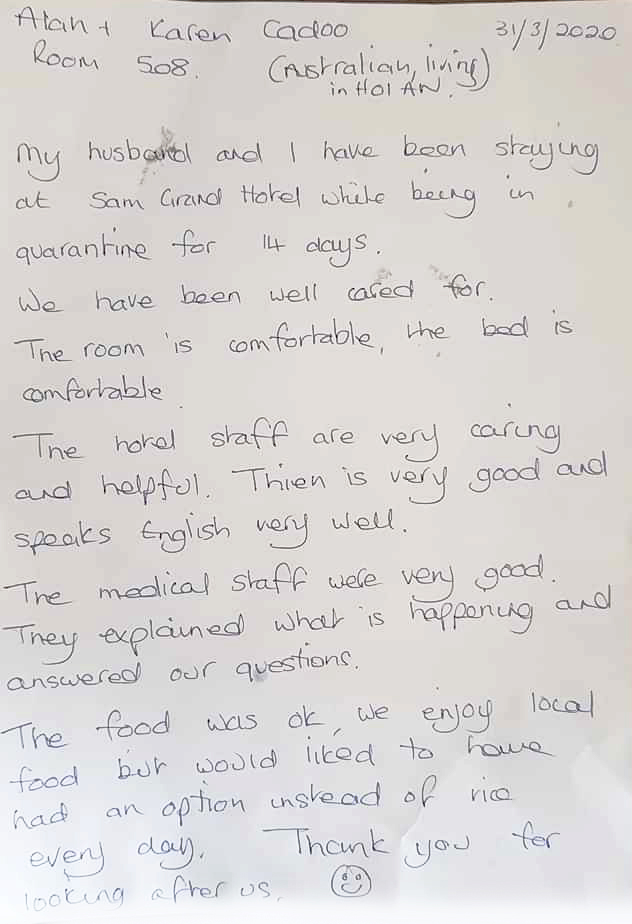 Alan + Karen Cadoo 31/3/2020
Room 508. (Australian, living)
in HOI AN.
My husband and I have been staying
at Sam Grand Hotel while being in
quarantine for 14 days.
We have been well cared for.
The room is comfortable, the bed is
comfortable
The hotel staff are very caring
and helpful. Thien is very good and
speaks English very well.
The medical staff were very good.
They explained what is happening and
answered our questions.
The food was ok, we enjoy local
food but would liked to have
had an option instead of rice
every day. Thank you for
looking after us. ☺